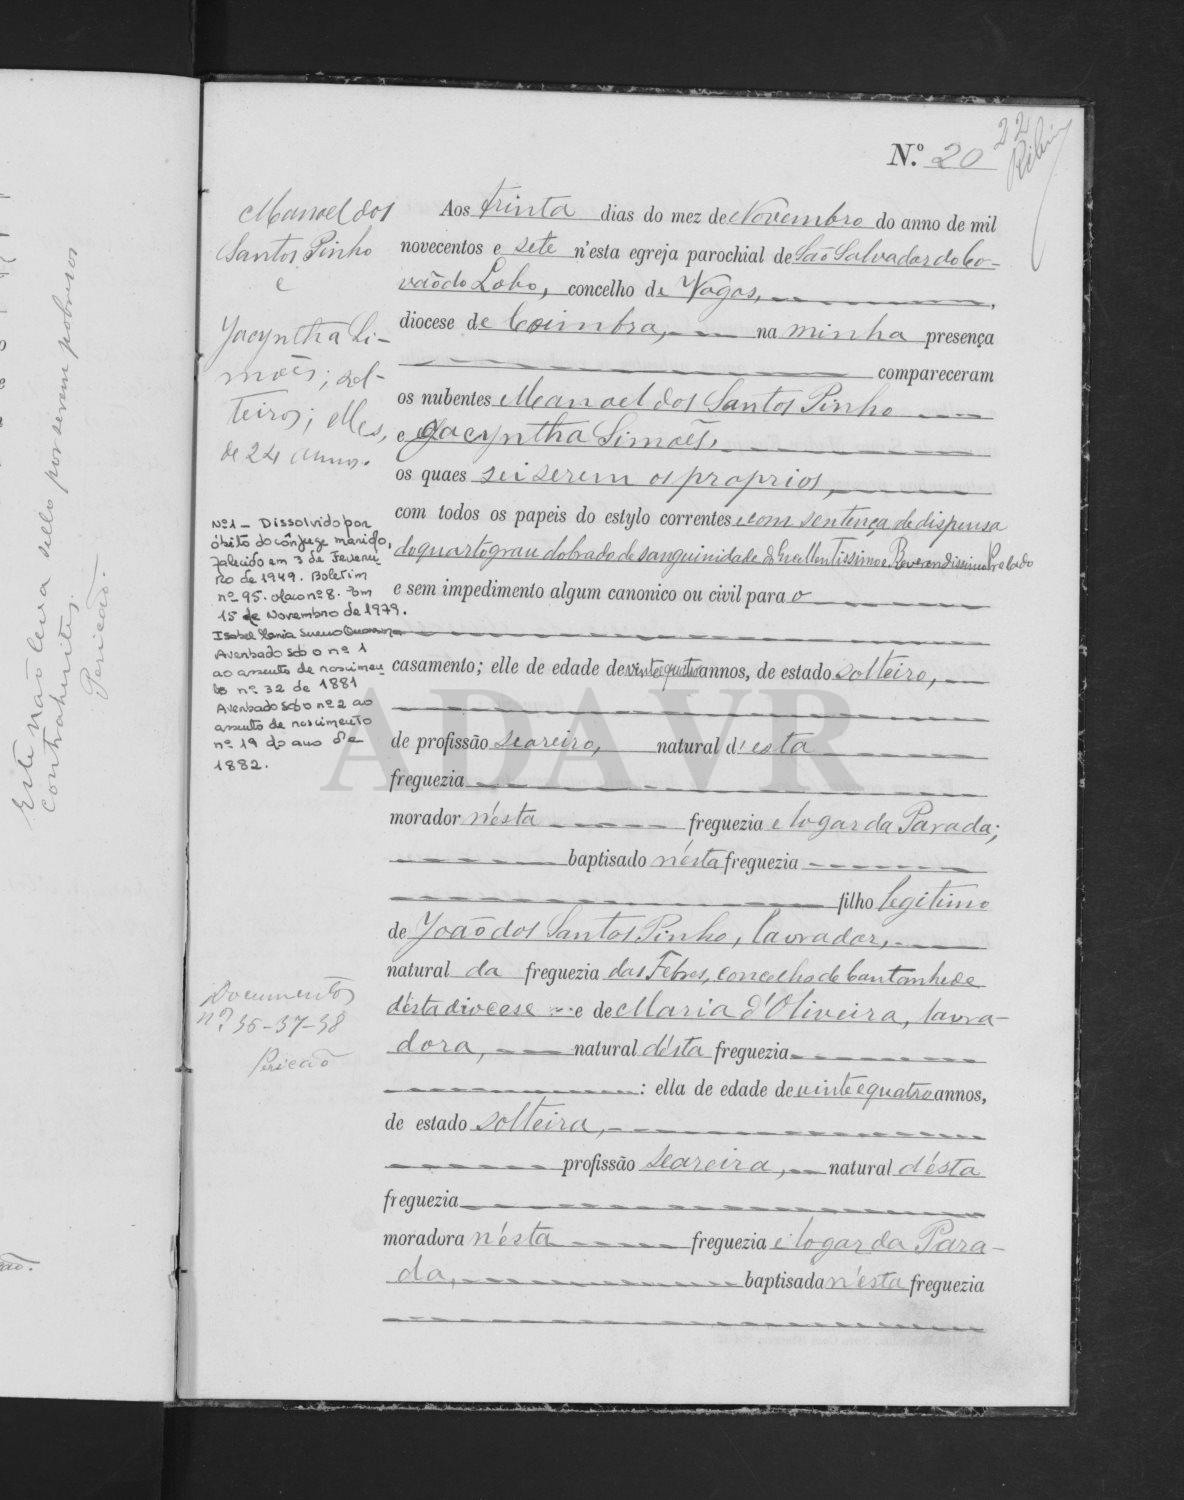 22
N.º 20
Manoel dos
Santos Pinho
e
Jacyntha Si-
mões; sol-
teiros; elles,
de 24 annos.
Nº 1 - Dissolvido por
óbito do cônjuge marido,
falecido em 3 de Feverei-
ro de 1949. Boletim
nº 95. Maço nº 8. Em
15 de Novembro de 1979.
Averbado sob o nº 1
ao assento de nascimen-
to nº 32 de 1881
Averbado sob o nº 2 ao
assento de nascimento
nº 19 do ano de
1882.
Documentos
nº 36-37-38
Pericão
Aos trinta dias do mez de Novembro do anno de mil
novecentos e sete n'esta egreja parochial de São Salvador do Co-
vão do Lobo, concelho de Vagos,
diocese de Coimbra, na minha presença
compareceram
os nubentes Manoel dos Santos Pinho
e Jacyntha Simões,
os quaes sei serem os proprios,
com todos os papeis do estylo correntes e com sentença de dispensa
do quarto grau dobrado de sanguinidade do Excellentissimo e Reverendissimo Prelado
e sem impedimento algum canonico ou civil para o
casamento; elle de edade de vinte e quatro annos, de estado solteiro,
de profissão seareiro, natural d'esta
freguezia
morador n'esta freguezia e logar da Parada;
baptisado n'ésta freguezia
filho legitimo
de João dos Santos Pinho, lavrador,
natural da freguezia das Febres, concelho de Cantanhede
d'ésta diocese e de Maria d'Oliveira, lavra-
dora, natural d'ésta freguezia
: ella de edade de vinte e quatro annos,
de estado solteira,
profissão seareira, natural d'ésta
freguezia
moradora n'ésta freguezia e logar da Para-
da, baptisada n'esta freguezia
Este não leva sello por serem pobres os
contrahentes.
Pericão.
ADAVR